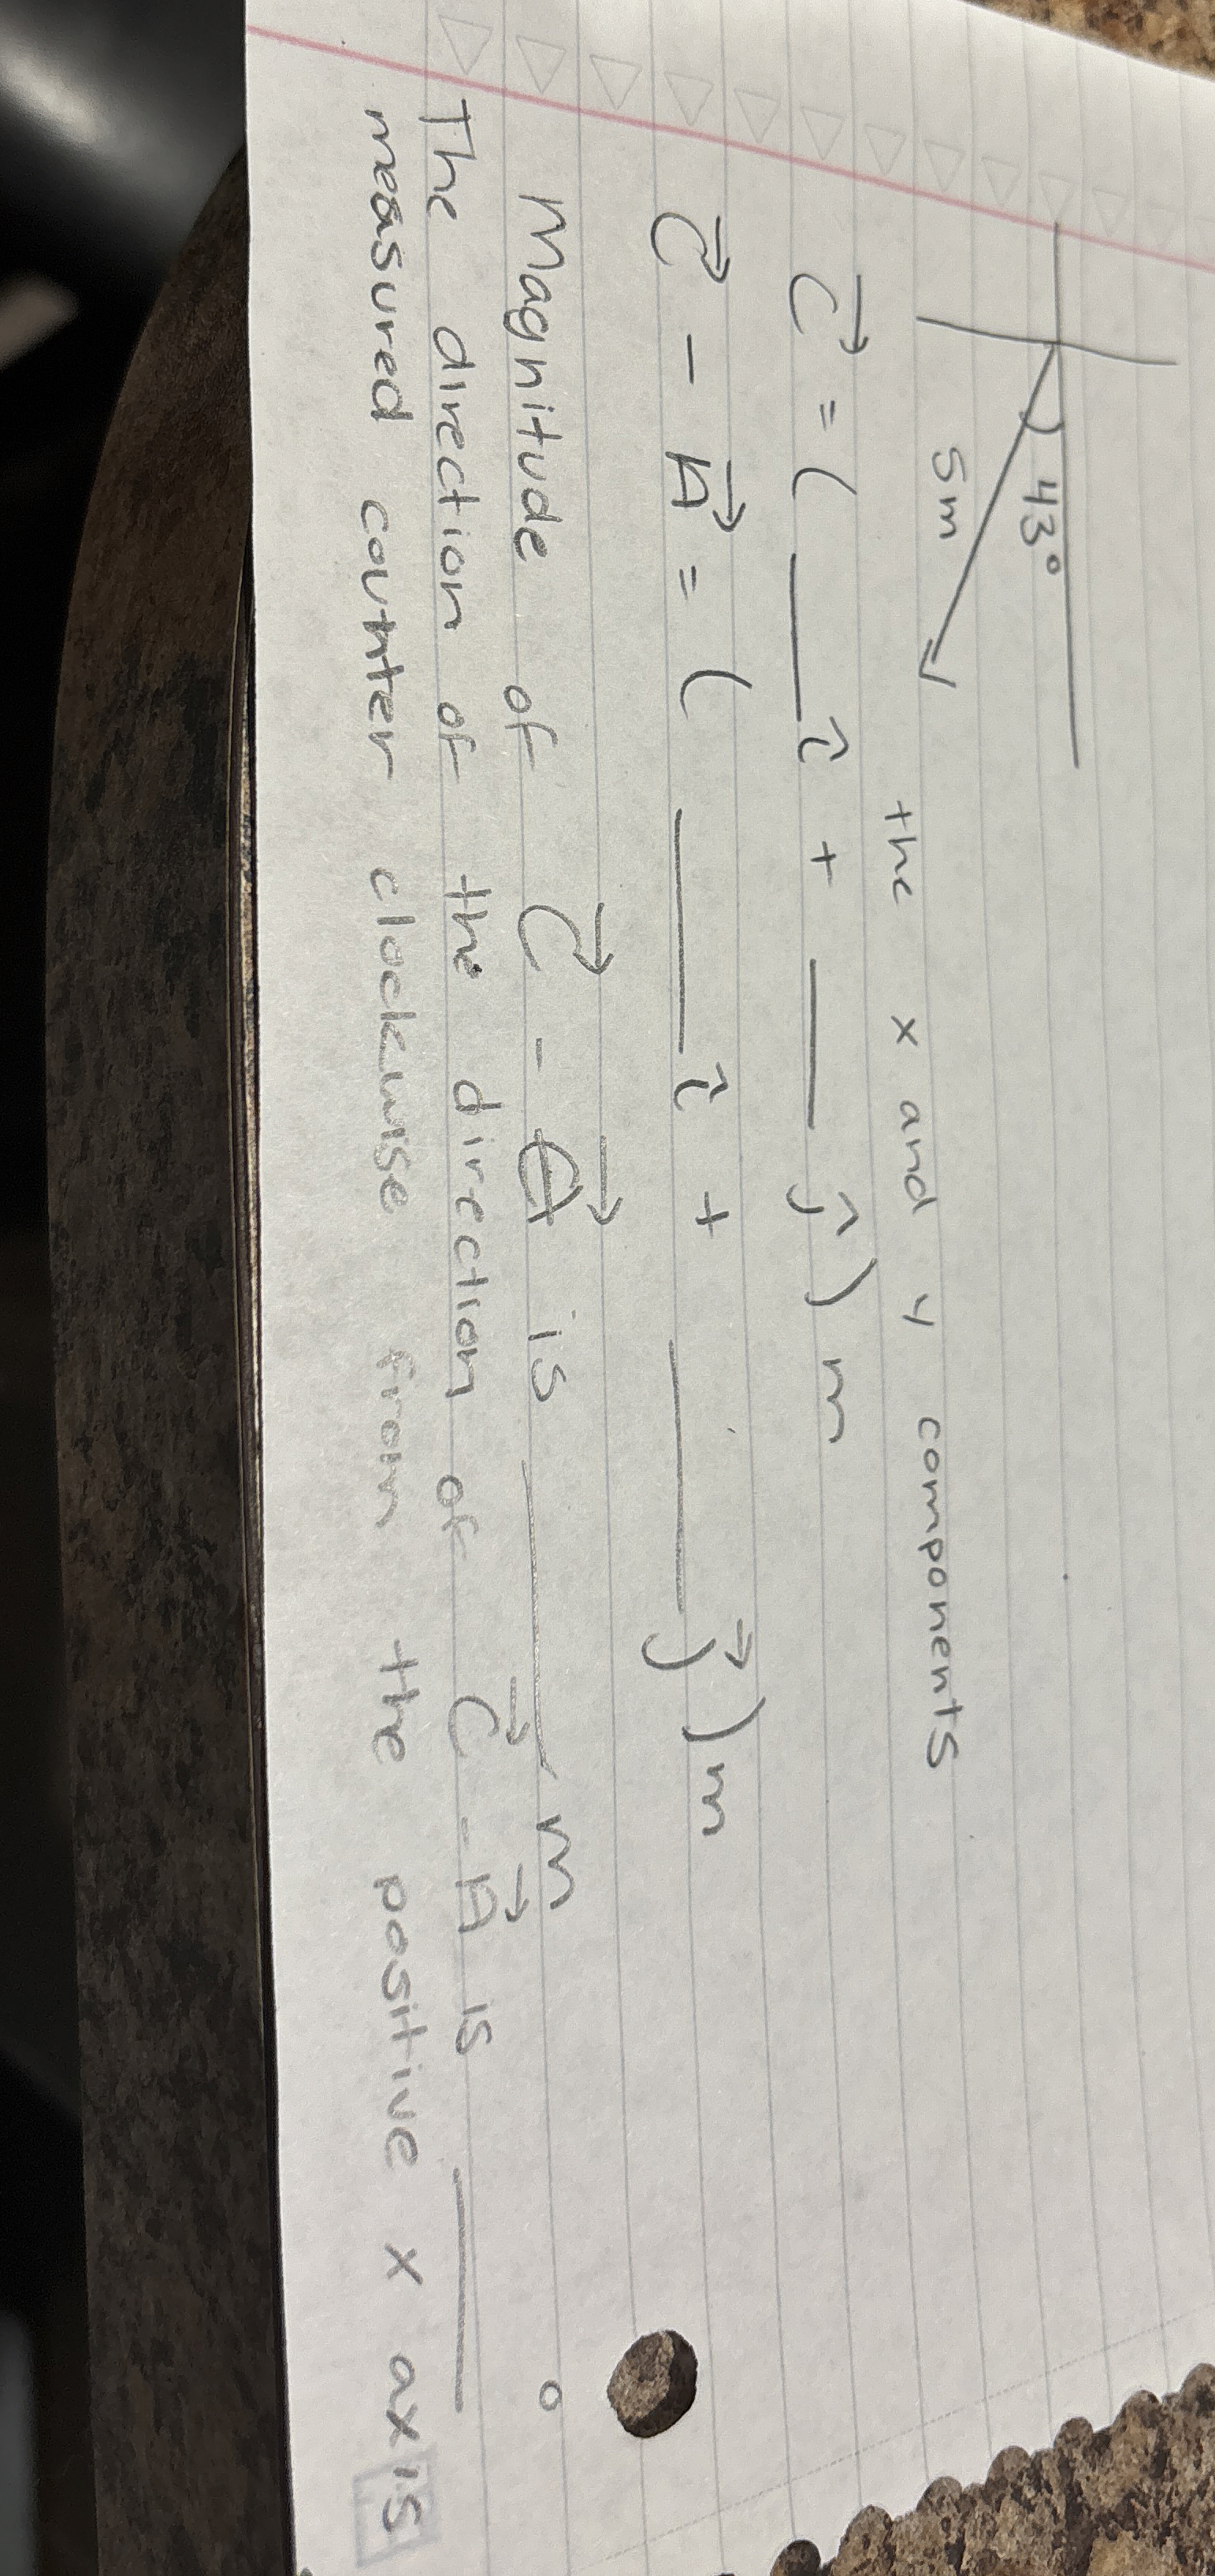 43°
5m
the x and y components
C⃗ = ( ____ î + ____ ĵ ) m
C⃗ - A⃗ = ( ____ î + ____ j⃗ ) m
Magnitude of C⃗ - A⃗ is ____ m
The direction of the direction of C⃗ - A⃗ is ____ °
measured counter clockwise from the positive x axis